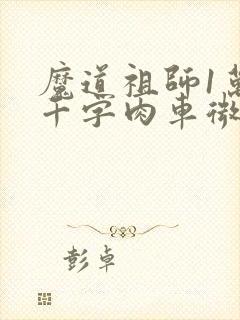 魔道祖師1萬
千字肉車微
彭卓